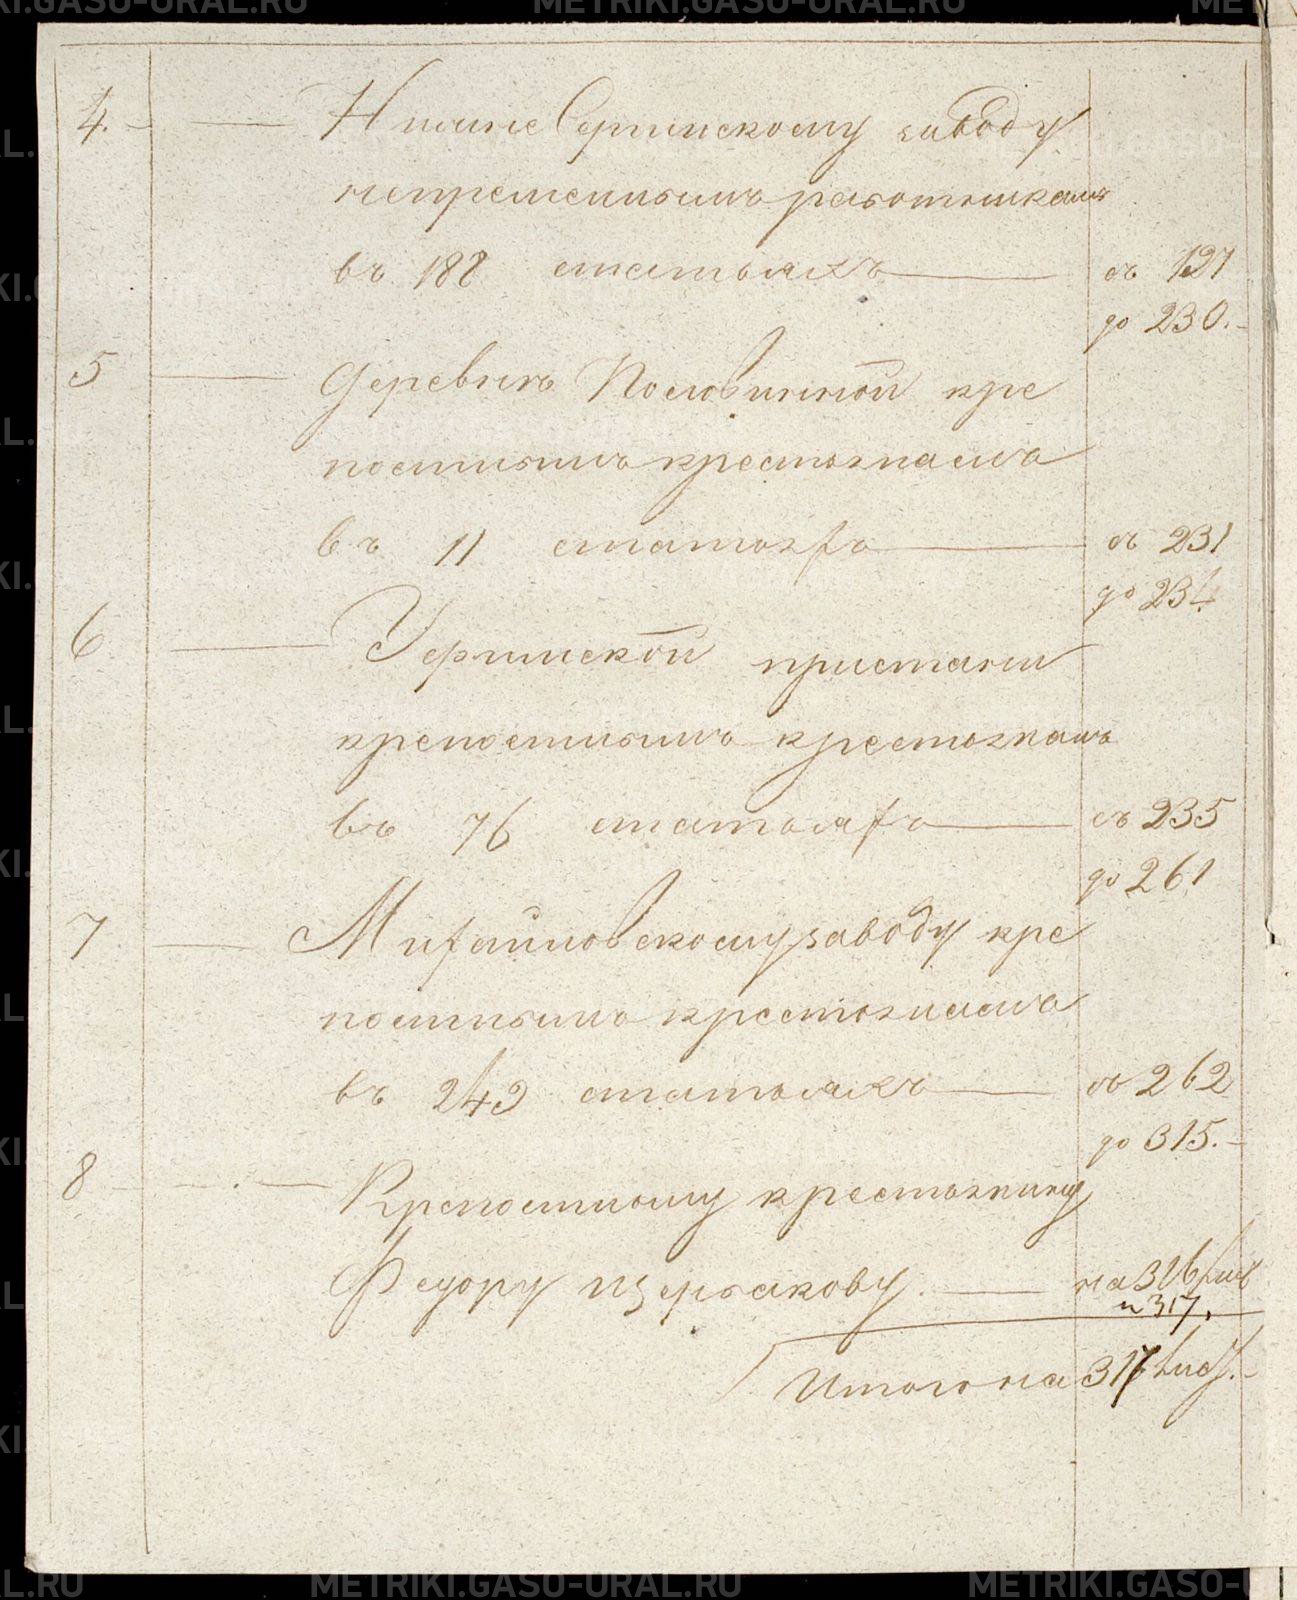 4. Нижне Сергинскому заводу
непременнымъ работникамъ
въ 188 статьяхъ съ 127
до 230.
5 Деревни Половинной кре
постнымъ крестьянамъ
въ 11 статьяхъ съ 231
до 234
6 Уфимской пристани
крепостнымъ крестьянамъ
въ 76 статьяхъ съ 235
до 261
7 Михайловскому заводу кре
постнымъ крестьянамъ
въ 249 статьяхъ съ 262
до 315.
8 Крепостному крестьянину
Федору Щербакову. на 316 лис
и 317.
Итого на 317 лис.
METRIKI.GASO-URAL.RU